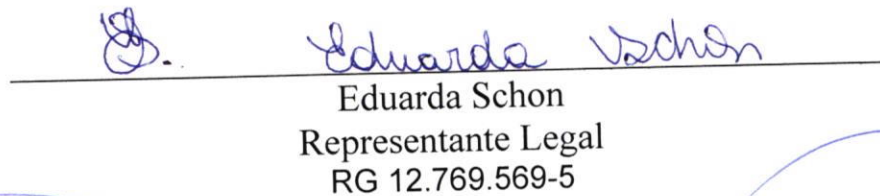 Eduarda Schon
Eduarda Schon
Representante Legal
RG 12.769.569-5